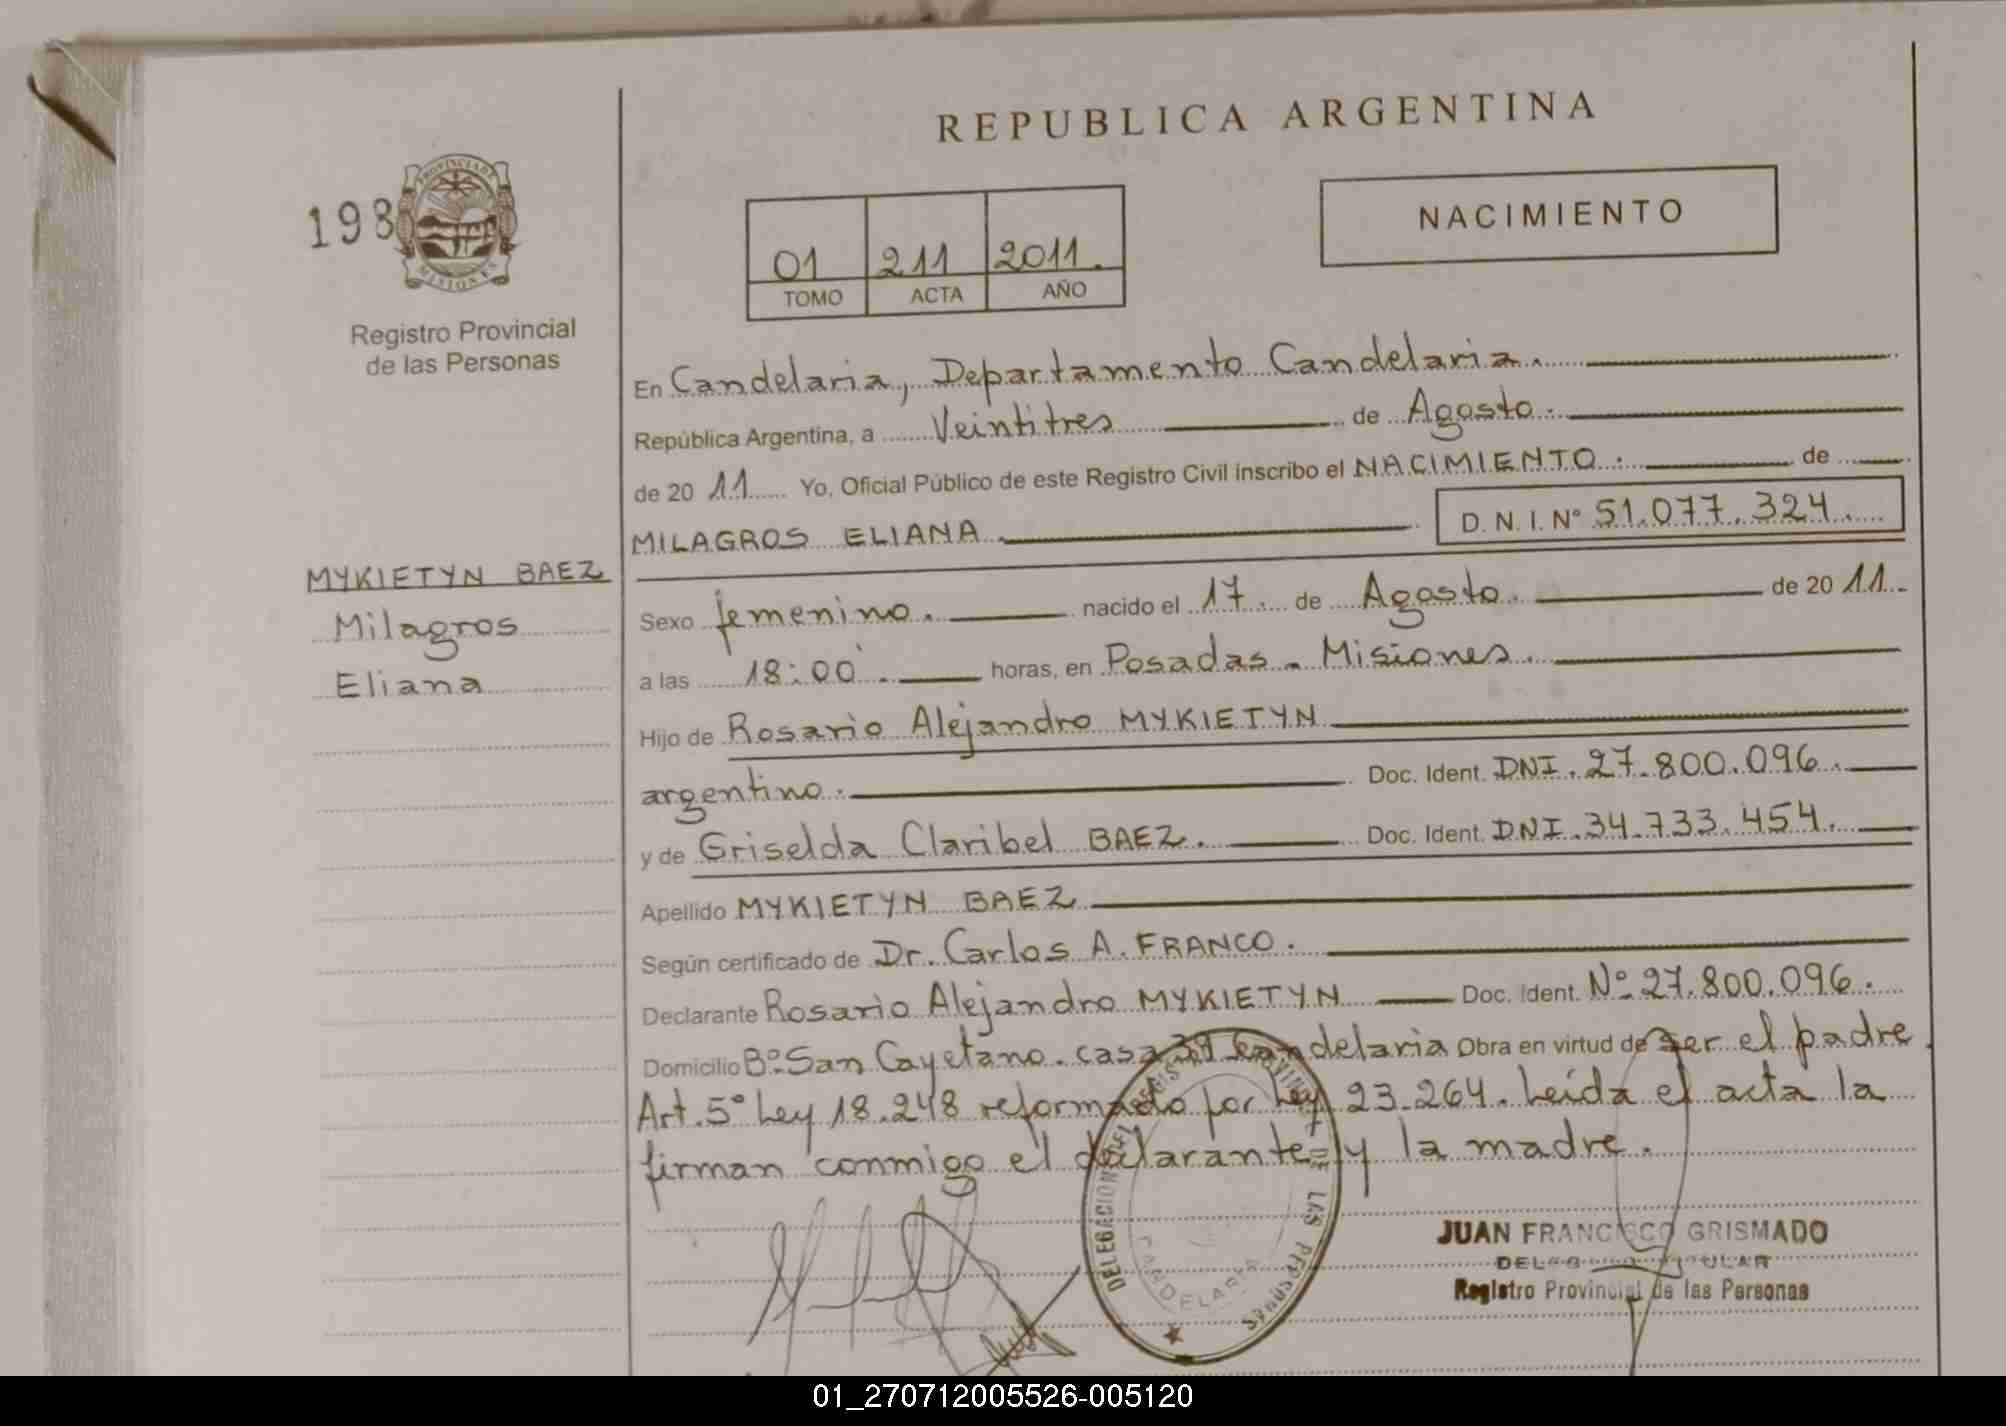 REPUBLICA ARGENTINA
198
PROVINCIA DE
MISIONES
Registro Provincial
de las Personas
01 211 2011.
TOMO ACTA AÑO
NACIMIENTO
En Candelaria, Departamento Candelaria.
República Argentina, a Veintitres de Agosto.
de 20 11 Yo, Oficial Público de este Registro Civil inscribo el NACIMIENTO. de
MILAGROS ELIANA. D. N. I. Nº 51.077.324.
MYKIETYN BAEZ
Milagros
Eliana
Sexo femenino. nacido el 17 de Agosto. de 20 11.
a las 18:00. horas, en Posadas - Misiones.
Hijo de Rosario Alejandro MYKIETYN
argentino. Doc. Ident. DNI. 27.800.096.
y de Griselda Claribel BAEZ. Doc. Ident. DNI. 34.733.454.
Apellido MYKIETYN BAEZ
Según certificado de Dr. Carlos A. FRANCO.
Declarante Rosario Alejandro MYKIETYN Doc. Ident. Nº 27.800.096.
Domicilio Bº San Cayetano. casa Candelaria Obra en virtud de ser el padre.
Art. 5º Ley 18.248 reformado por Ley 23.264. Leída el acta la
firman conmigo el declarante y la madre.
LAS PERSONAS
CANDELARIA
JUAN FRANCISCO GRISMADO
Registro Provincial de las Personas
01_270712005526-005120